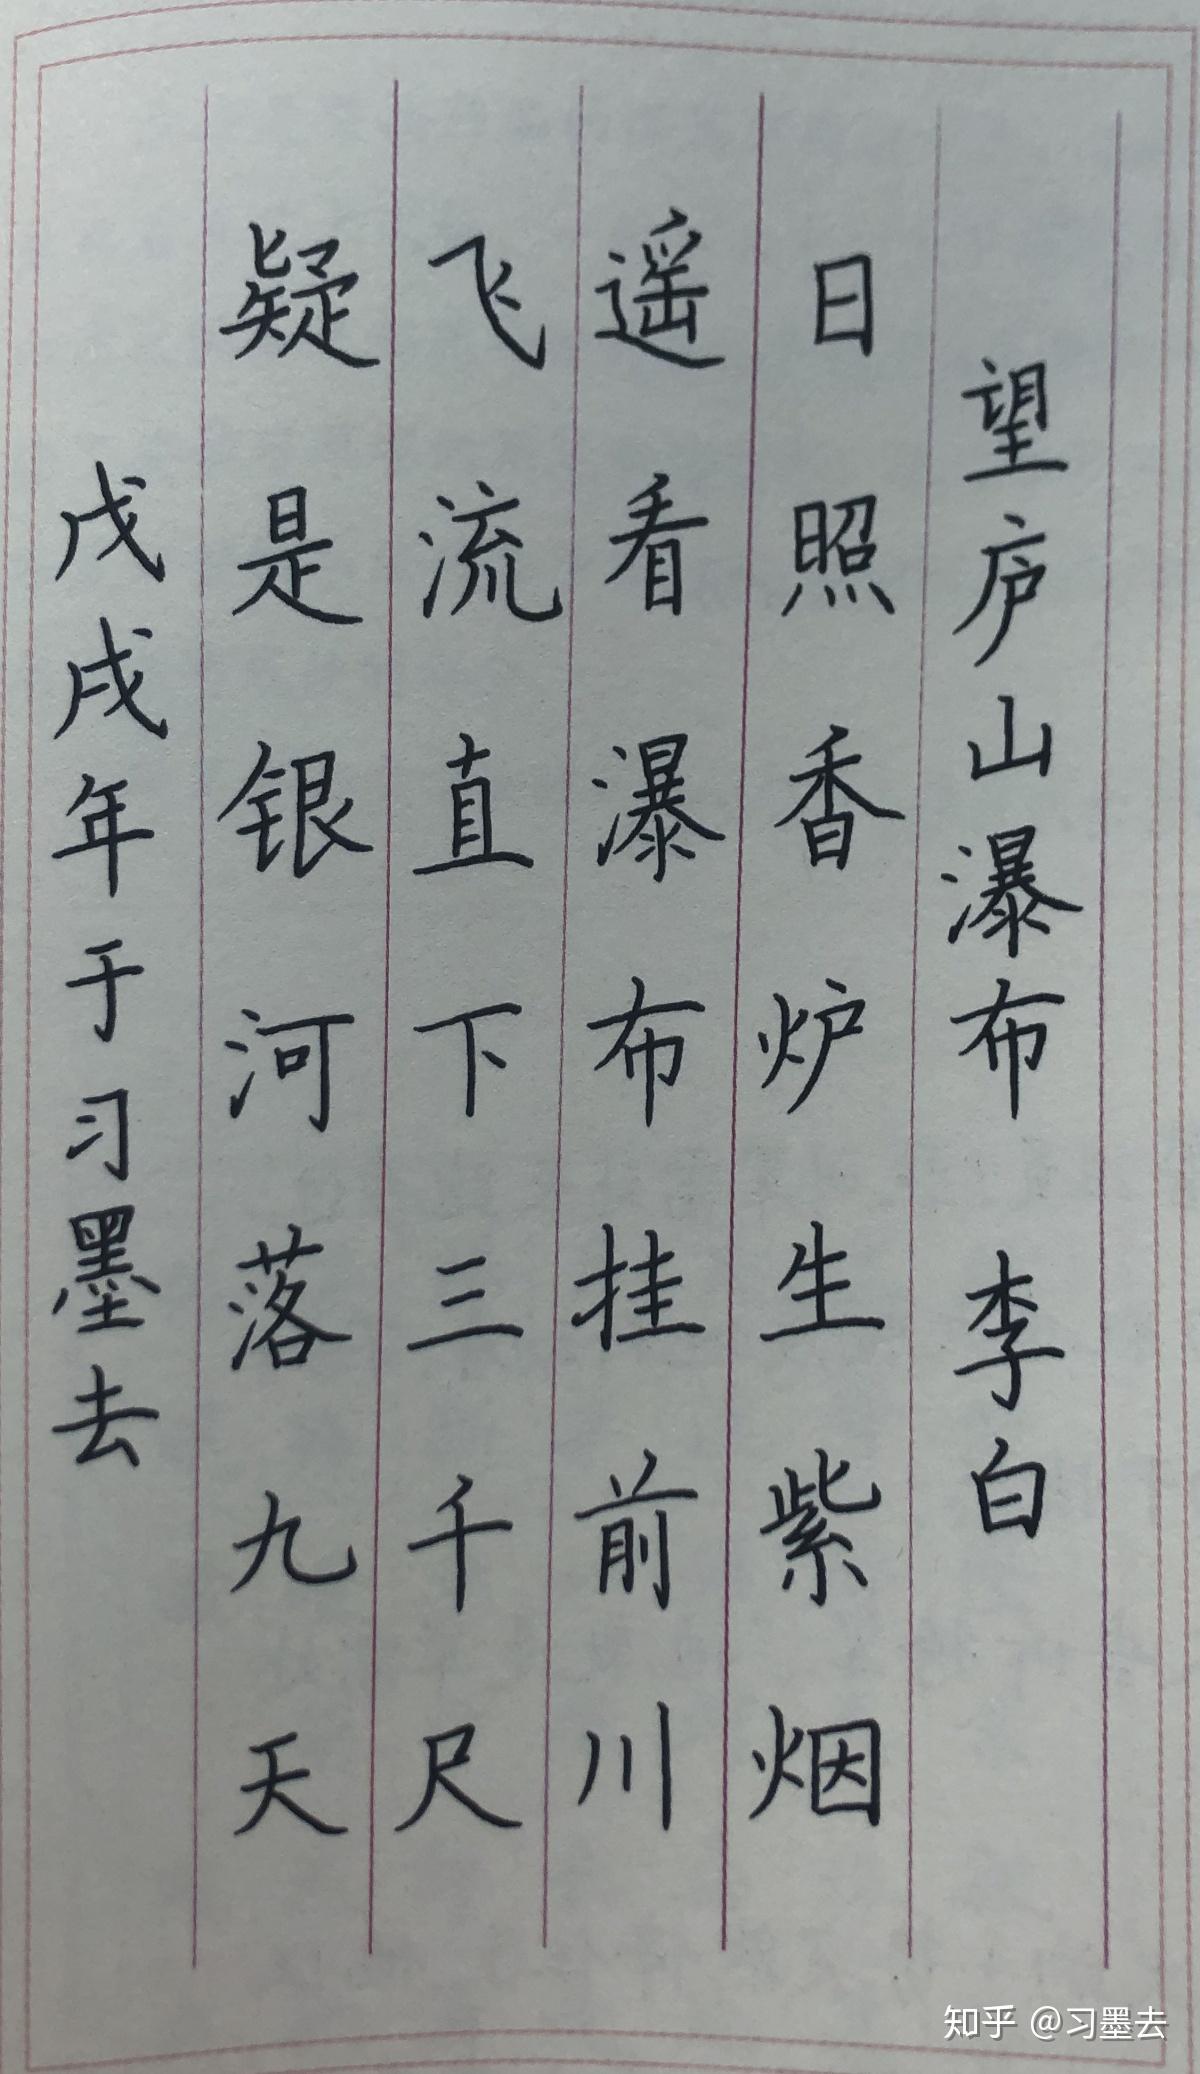 望庐山瀑布 李白
日照香炉生紫烟
遥看瀑布挂前川
飞流直下三千尺
疑是银河落九天
戊戌年于习墨去
知乎 @习墨去